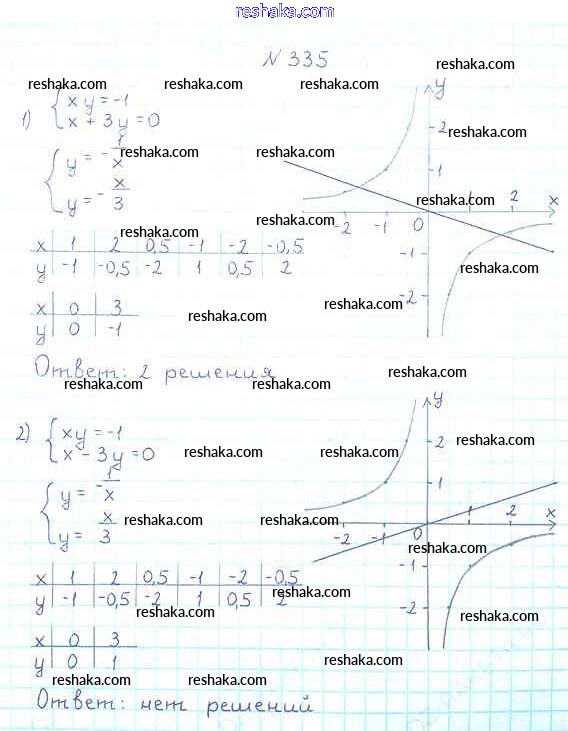 reshaka.com
N 335
reshaka.com
reshaka.com reshaka.com reshaka.com
1) { xy = -1
x + 3y = 0
reshaka.com
{ y = - 1/x
y = - x/3
reshaka.com reshaka.com
reshaka.com reshaka.com
y
2
1
-2 -1 0 2 x
-1
-2
reshaka.com reshaka.com
x 1 2 0,5 -1 -2 -0,5
y -1 -0,5 -2 1 0,5 2
reshaka.com
x 0 3
y 0 -1
reshaka.com reshaka.com
Ответ: 2 решения
reshaka.com reshaka.com reshaka.com
2) { xy = -1
x - 3y = 0
reshaka.com reshaka.com reshaka.com
{ y = - 1/x
y = x/3
reshaka.com reshaka.com
y
2
1
-2 -1 0 1 2 x
-1
-2
reshaka.com
x 1 2 0,5 -1 -2 -0,5
y -1 -0,5 -2 1 0,5 2
reshaka.com reshaka.com reshaka.com
x 0 3
y 0 1
reshaka.com reshaka.com
reshaka.com reshaka.com reshaka.com
Ответ: нет решений